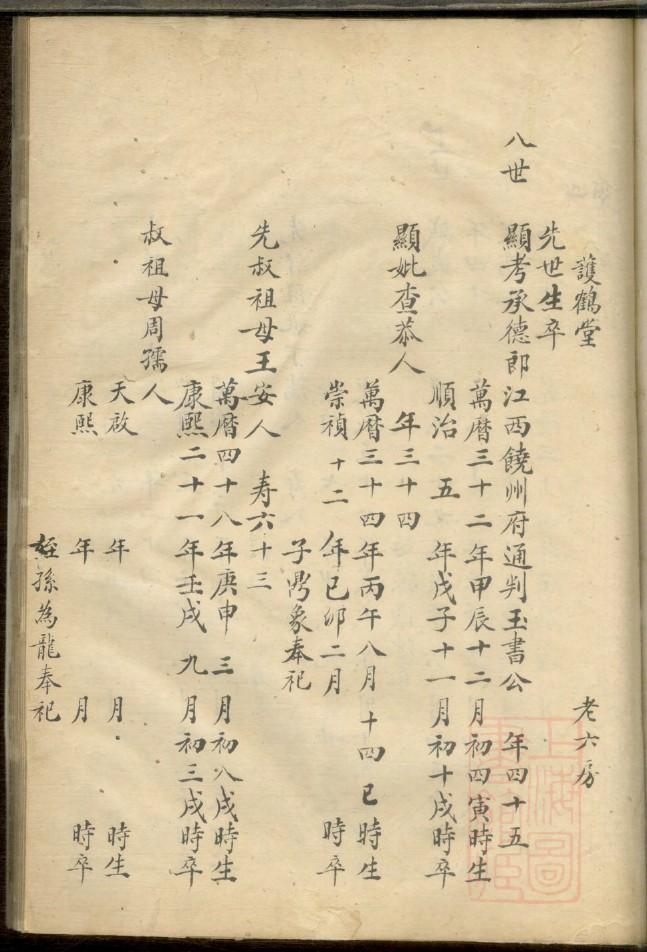 護鶴堂 老六房
先世生卒
八世 顯考承德郎江西饒州府通判玉書公 年四十五
萬曆三十二年甲辰十二月初四寅時生
順治五年戊子十一月初十戌時卒
顯妣查恭人 年三十四
萬曆三十四年丙午八月十四巳時生
崇禎十二年己卯二月 時卒
子鼎象奉祀
先叔祖母王安人 寿六十三
萬曆四十八年庚申三月初八戌時生
康熙二十一年壬戌九月初三戌時卒
叔祖母周孺人
天啟 年 月 時生
康熙 年 月 時卒
姪孫為龍奉祀
上海圖書館藏